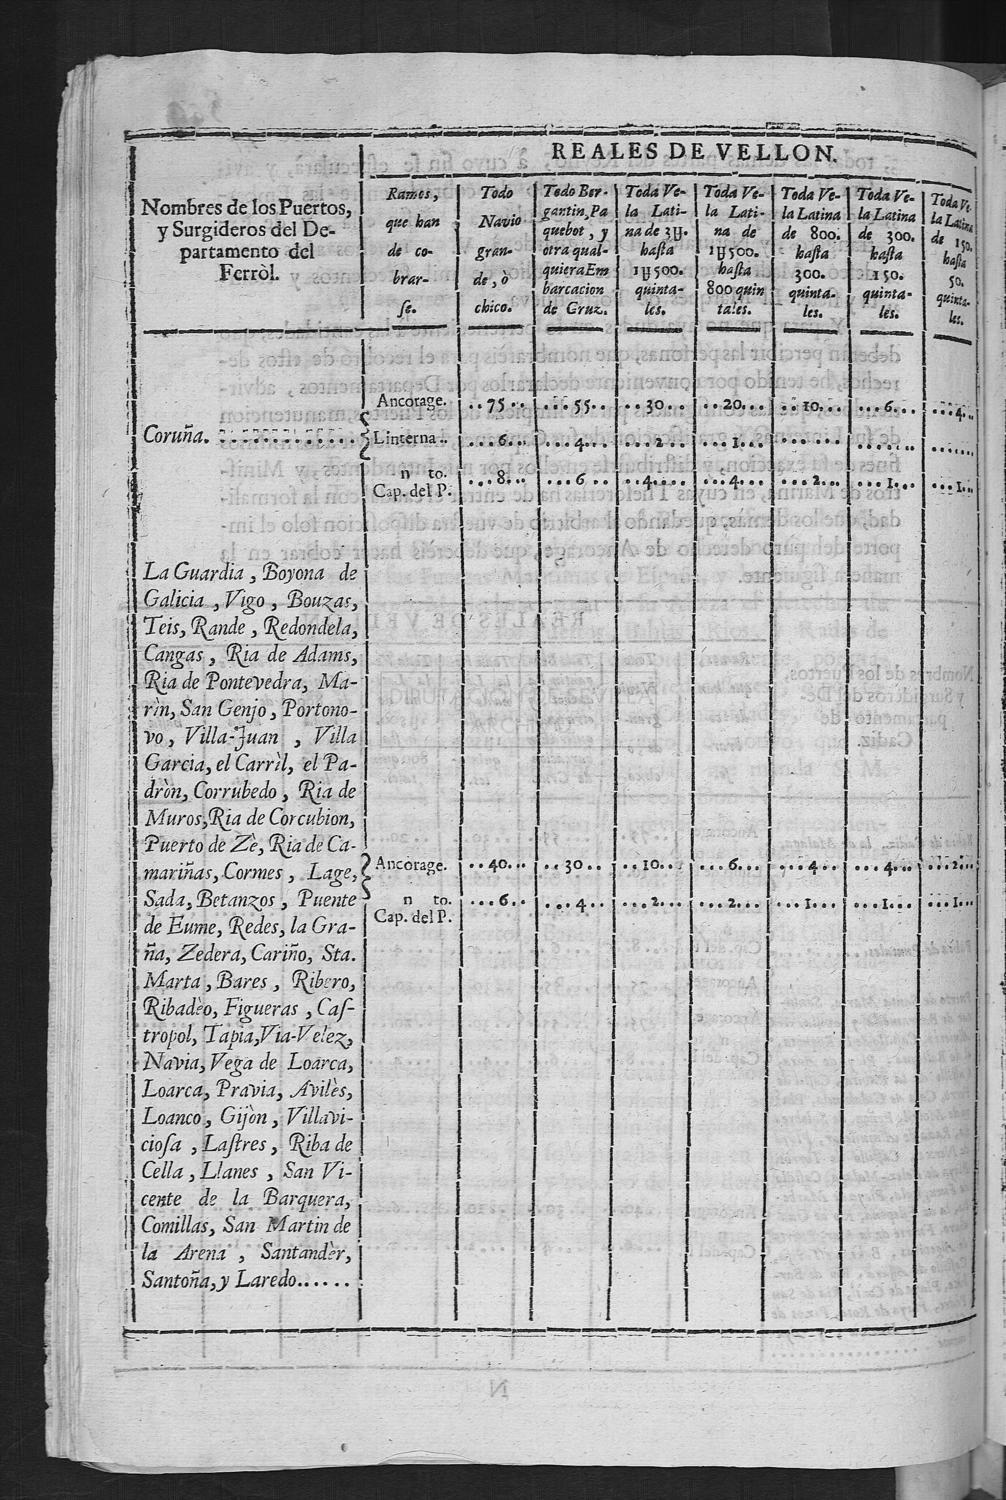 REALES DE VELLON.
Nombres de los Puertos,
y Surgideros del De-
partamento del
Ferròl.
Rames,
que han
de co-
brar-
se.
Todo
Navio
gran-
de, ò
chico.
Todo Ber-
gantin, Pa
quebot, y
otra qual-
quiera Em
barcacion
de Cruz.
Toda Ve-
la Lati-
na de 3Ų.
hasta
1Ų500.
quinta-
les.
Toda Ve-
la Lati-
na de
1Ų500.
hasta
800 quin
tales.
Toda Ve-
la Latina
de 800.
hasta
300.
quinta-
les.
Toda Ve-
la Latina
de 300.
hasta
150.
quinta-
les.
Toda Ve-
la Latina
de 150.
hasta
50.
quinta-
les.
Ancorage. ..75.. ...55... ..30... ..20... ..10... ...6... ...4...
Coruña. .............. Linterna.. ...6... ...4... ...2... ...1... ....... ....... .......
n to.
Cap. del P. ...8... ...6.. ...4... ...4... ...2... ...1... ...1...
La Guardia, Boyona de
Galicia, Vigo, Bouzas,
Teis, Rande, Redondela,
Cangas, Ria de Adams,
Ria de Pontevedra, Ma-
rìn, San Genjo, Portono-
vo, Villa-Juan, Villa
Garcia, el Carrìl, el Pa-
dròn, Corrubedo, Ria de
Muros, Ria de Corcubion,
Puerto de Zè, Ria de Ca-
mariñas, Cormes, Lage, Ancorage. ..40... ..30.. ..10... ...6... ...4... ...4... ...2...
Sada, Betanzos, Puente n to. ...6... ...4... ...2... ...2... ...1... ...1... ...1...
de Eume, Redes, la Gra- Cap. del P.
ña, Zedera, Cariño, Sta.
Marta, Bares, Ribero,
Ribadèo, Figueras, Caſ-
tropol, Tapia, Via-Velez,
Navia, Vega de Loarca,
Loarca, Pravia, Avilès,
Loanco, Gijòn, Villavi-
cioſa, Laſtres, Riba de
Cella, Llanes, San Vi-
cente de la Barquera,
Comillas, San Martin de
la Arena, Santandèr,
Santoña, y Laredo......